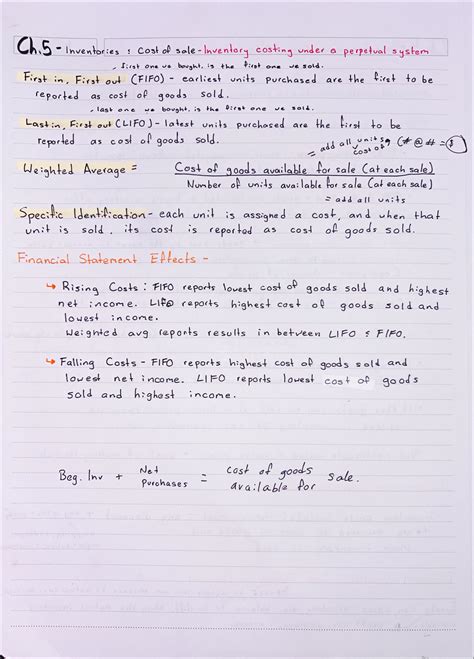 Ch.5 - Inventories & Cost of sale - Inventory costing under a perpetual system
, first one we bought, is the first one we sold.
First in, First out (FIFO) - earliest units purchased are the first to be
reported as cost of goods sold.
, last one we bought, is the first one we sold.
Last in, First out (LIFO) - latest units purchased are the first to be
reported as cost of goods sold.
= add all units cost of (# @ # = $)
Weighted Average = Cost of goods available for sale (at each sale)
Number of units available for sale (at each sale)
= add all units
Specific Identification - each unit is assigned a cost, and when that
unit is sold, its cost is reported as cost of goods sold.
Financial Statement Effects -
↳ Rising Costs : FIFO reports lowest cost of goods sold and highest
net income. LIFO reports highest cost of goods sold and
lowest income.
Weighted avg reports results in between LIFO & FIFO.
↳ Falling Costs - FIFO reports highest cost of goods sold and
lowest net income. LIFO reports lowest cost of goods
sold and highest income.
Beg. Inv + Net Purchases = cost of goods available for sale.